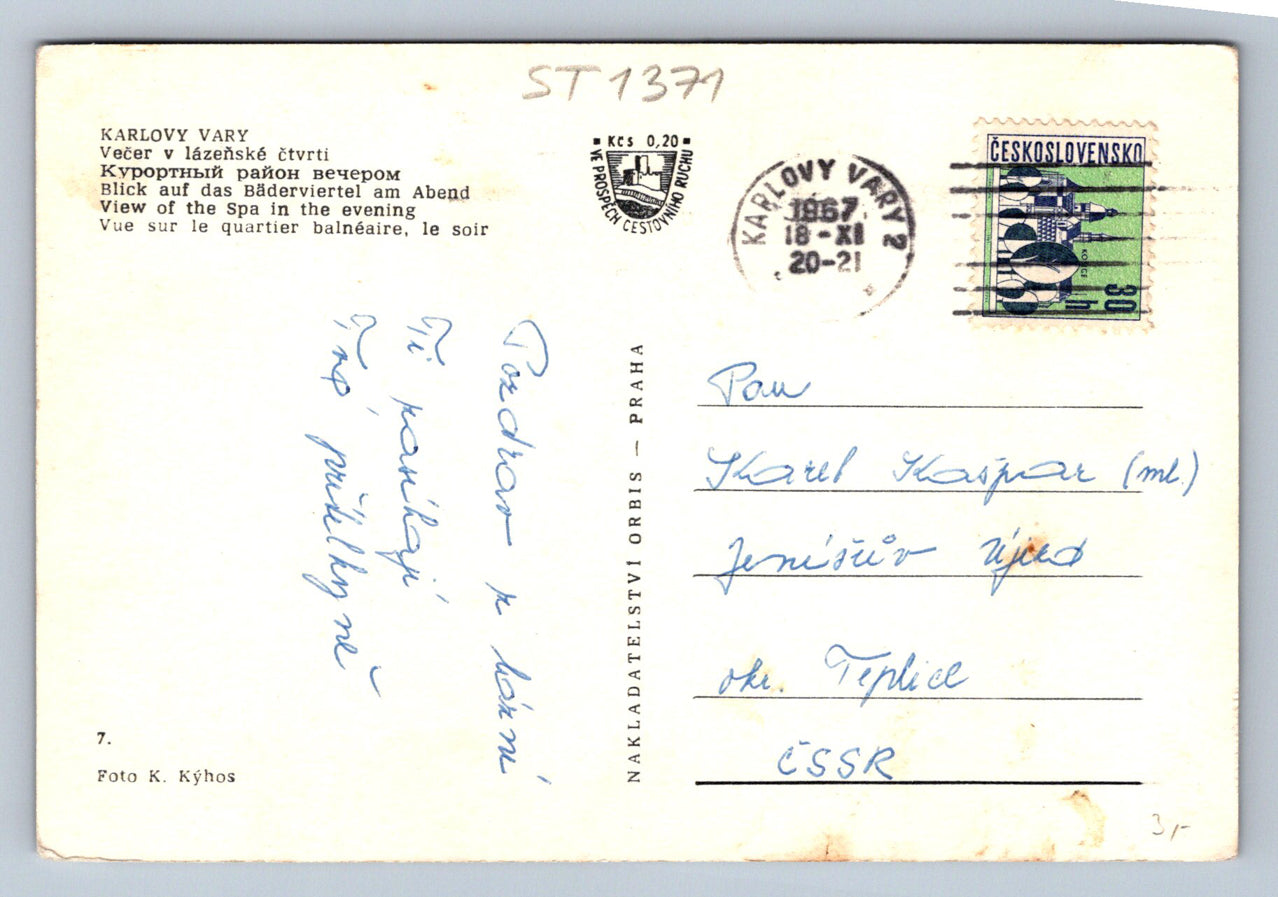 ST 1371
KARLOVY VARY
Večer v lázeňské čtvrti
Курортный район вечером
Blick auf das Bäderviertel am Abend
View of the Spa in the evening
Vue sur le quartier balnéaire, le soir
Kčs 0,20
VE PROSPĚCH CESTOVNÍHO RUCHU
KARLOVY VARY 2
1967
18-XI
20-21
ČESKOSLOVENSKO
30 h
Pozdrav z lázní
Ti
přítelkyně
NAKLADATELSTVÍ ORBIS — PRAHA
Pan
Karel Kašpar (ml.)
Jeníšův Újezd
okr. Teplice
ČSSR
7.
Foto K. Kýhos
3,-